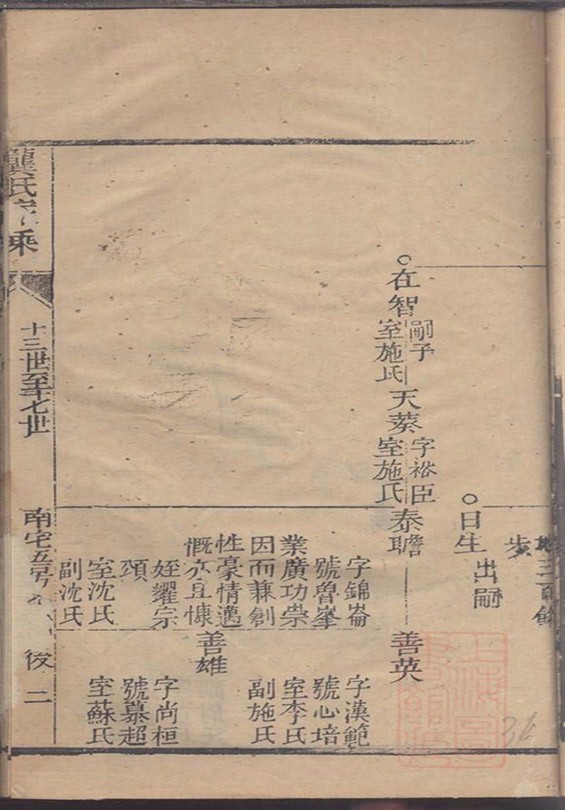 步
日生 出嗣
在智 嗣子 室施氏 天菉 字裕臣 室施氏 泰聸 善英
字錦崙 字漢範
號魯峯 號心培
業廣功崇 室李氏
因而兼創 副施氏
性豪情邁
慨亦且慷 善雄
姪耀宗 字尚桓
頌 號慕超
室沈氏 室蘇氏
副沈氏
龔氏家乘
十三世至十七世
南宅五房
後二